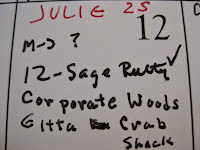 JULIE 25
12
M-J ?
12-Sage Rutty ✓
Corporate Woods
Gitta Crab
Shack